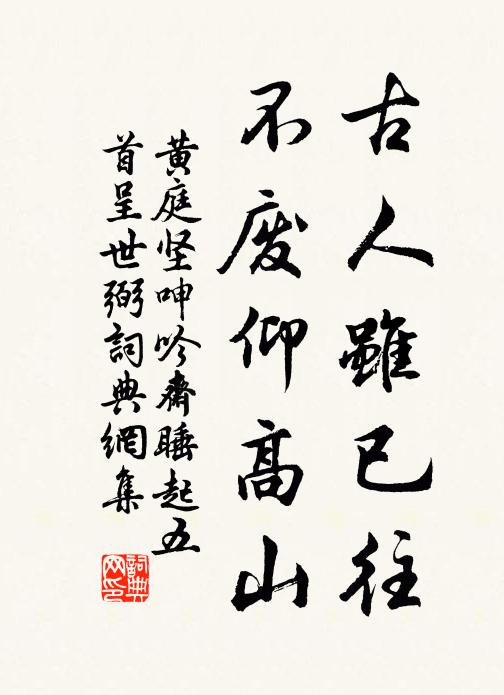 古人雖已往
不废仰高山
黄庭坚呻吟斋睡起五
首呈世弼詞典網集
詞典
网印